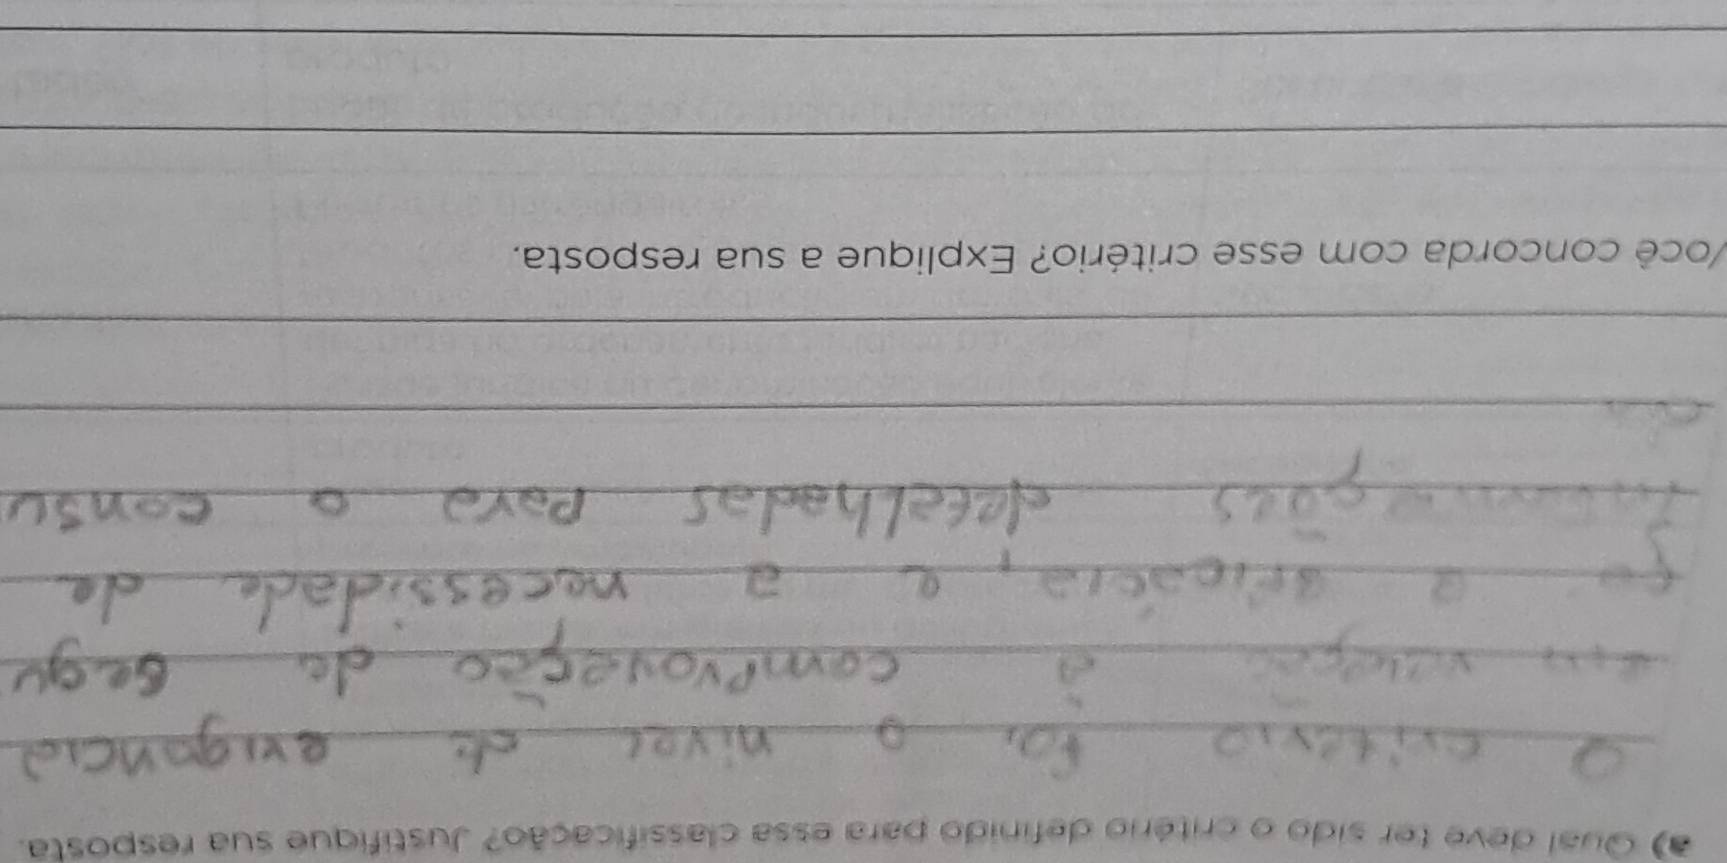 a) Qual deve ter sido o critério definido para essa classificação? Justifique sua resposta.
O critério foi o nivel de exigencia
em relação à comprovação de segu
e a eficácia, e a necessidade de
informações detalhadas para o consu
Você concorda com esse critério? Explique a sua resposta.